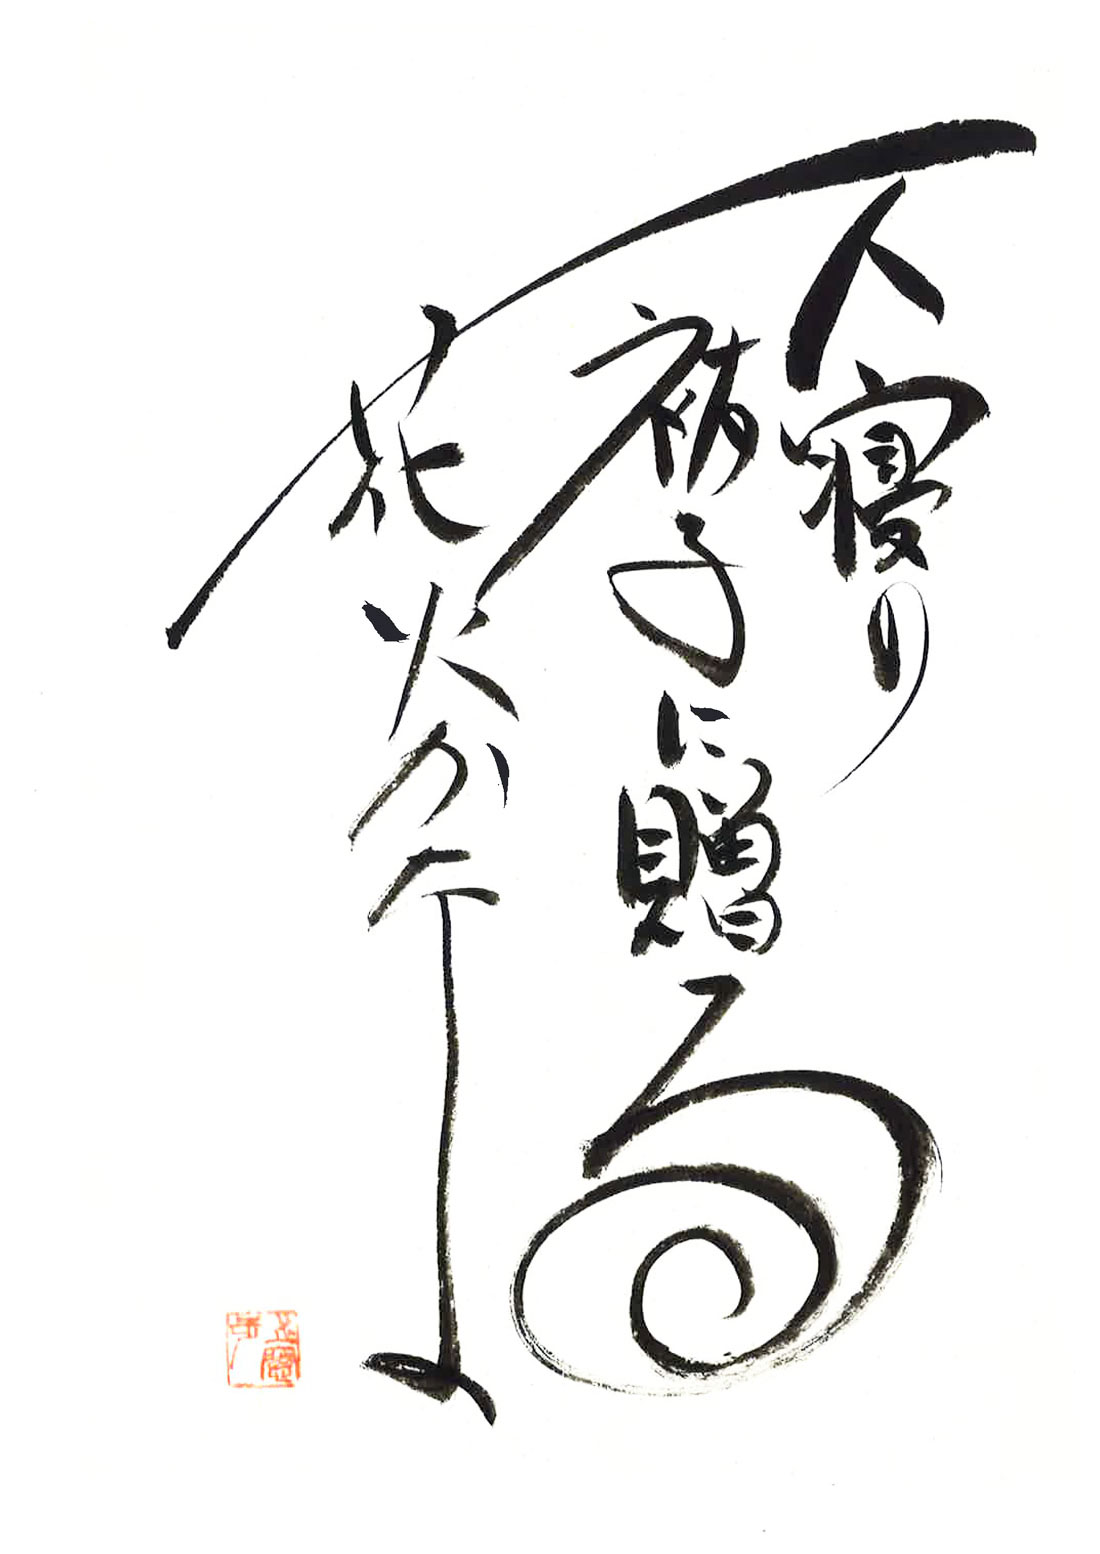 一人寝の
祐子に贈る
花火かな